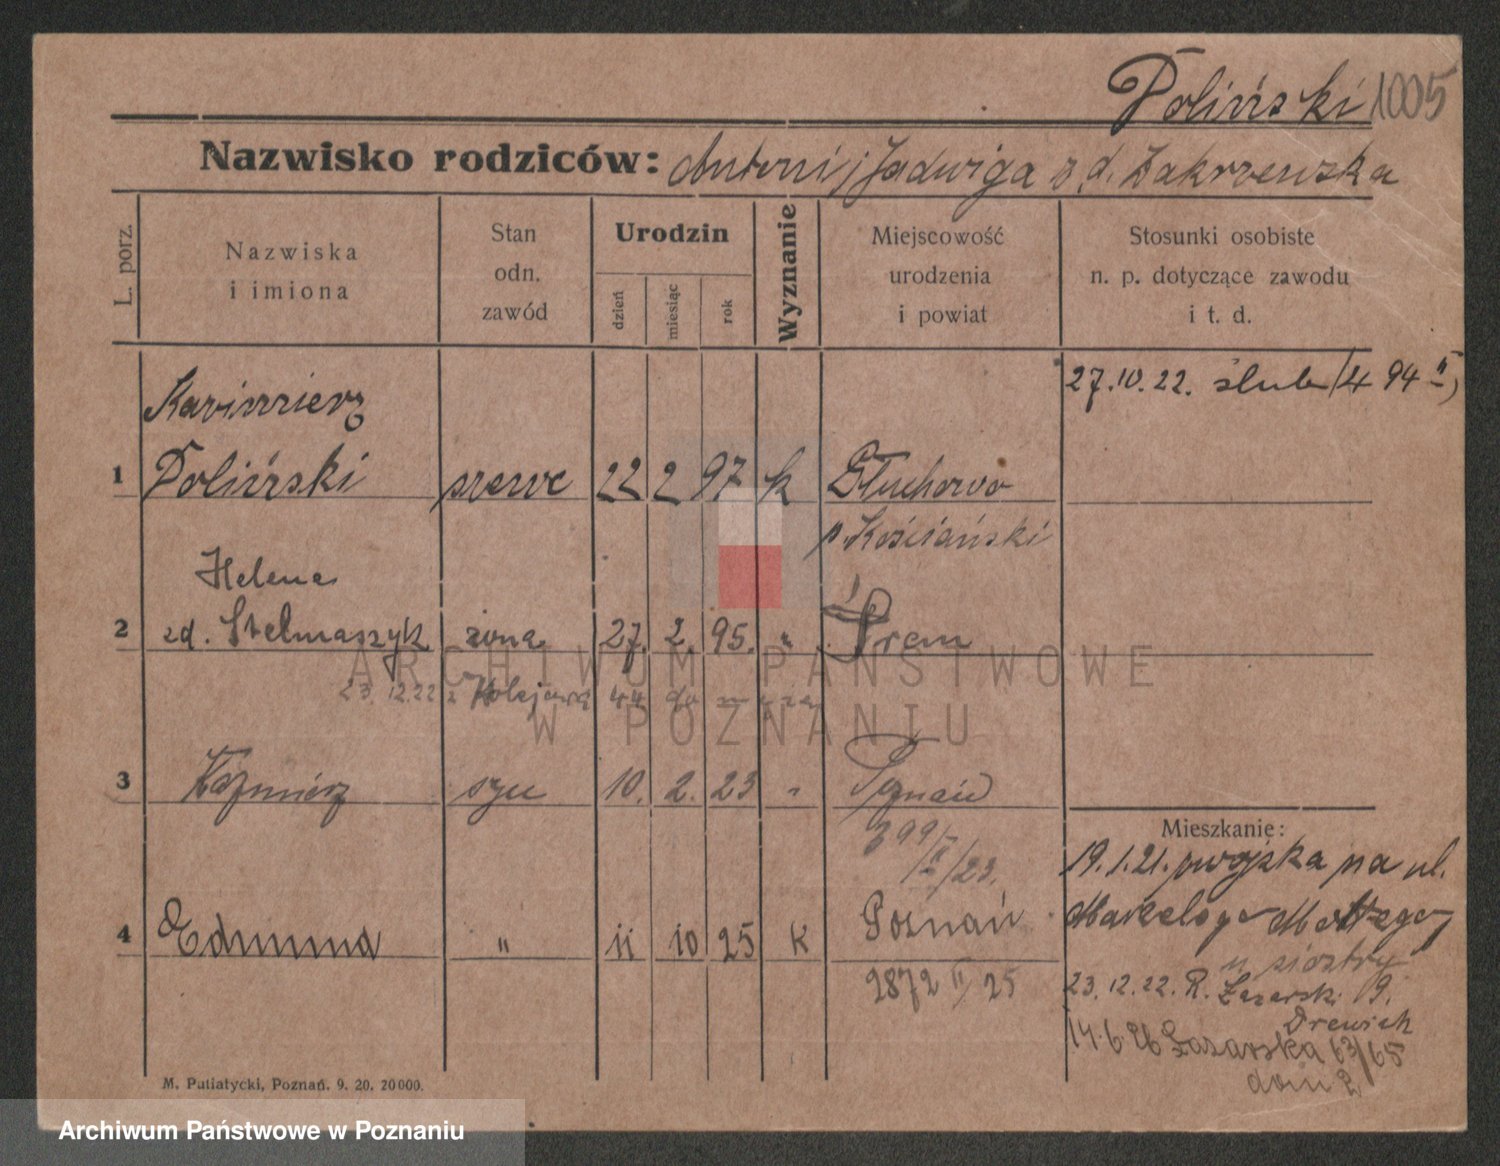 Poliński 1005
Nazwisko rodziców: Antoni i Jadwiga z d. Zakrzewska
L. porz.
Nazwiska
i imiona
Stan
odn.
zawód
Urodzin
dzień
miesiąc
rok
Wyznanie
Miejscowość
urodzenia
i powiat
Stosunki osobiste
n. p. dotyczące zawodu
i t. d.
27.10.22. ślub (4 94 II)
Kazimierz
1 Poliński szewc 22 2 97 k Głuchowo
p. Kościański
Helena
2 zd. Stelmaszyk żona 27. 2. 95. " Śrem
23.12.22 z Kolejową 44 do
3 Kazmierz syn 10. 2. 23 " Poznań
399/II/23.
4 Edmund " 11 10 25 k Poznań
2872 II/25
Mieszkanie:
19.1.21. z wojska na ul.
Marcelego Mottego
u siostry
23.12.22. R. Łazarski 9.
Drewich
14.6.26 Łazarska 63/65
dom 2
M. Putiatycki, Poznań. 9. 20. 20000.
ARCHIWUM PAŃSTWOWE
W POZNANIU
Archiwum Państwowe w Poznaniu